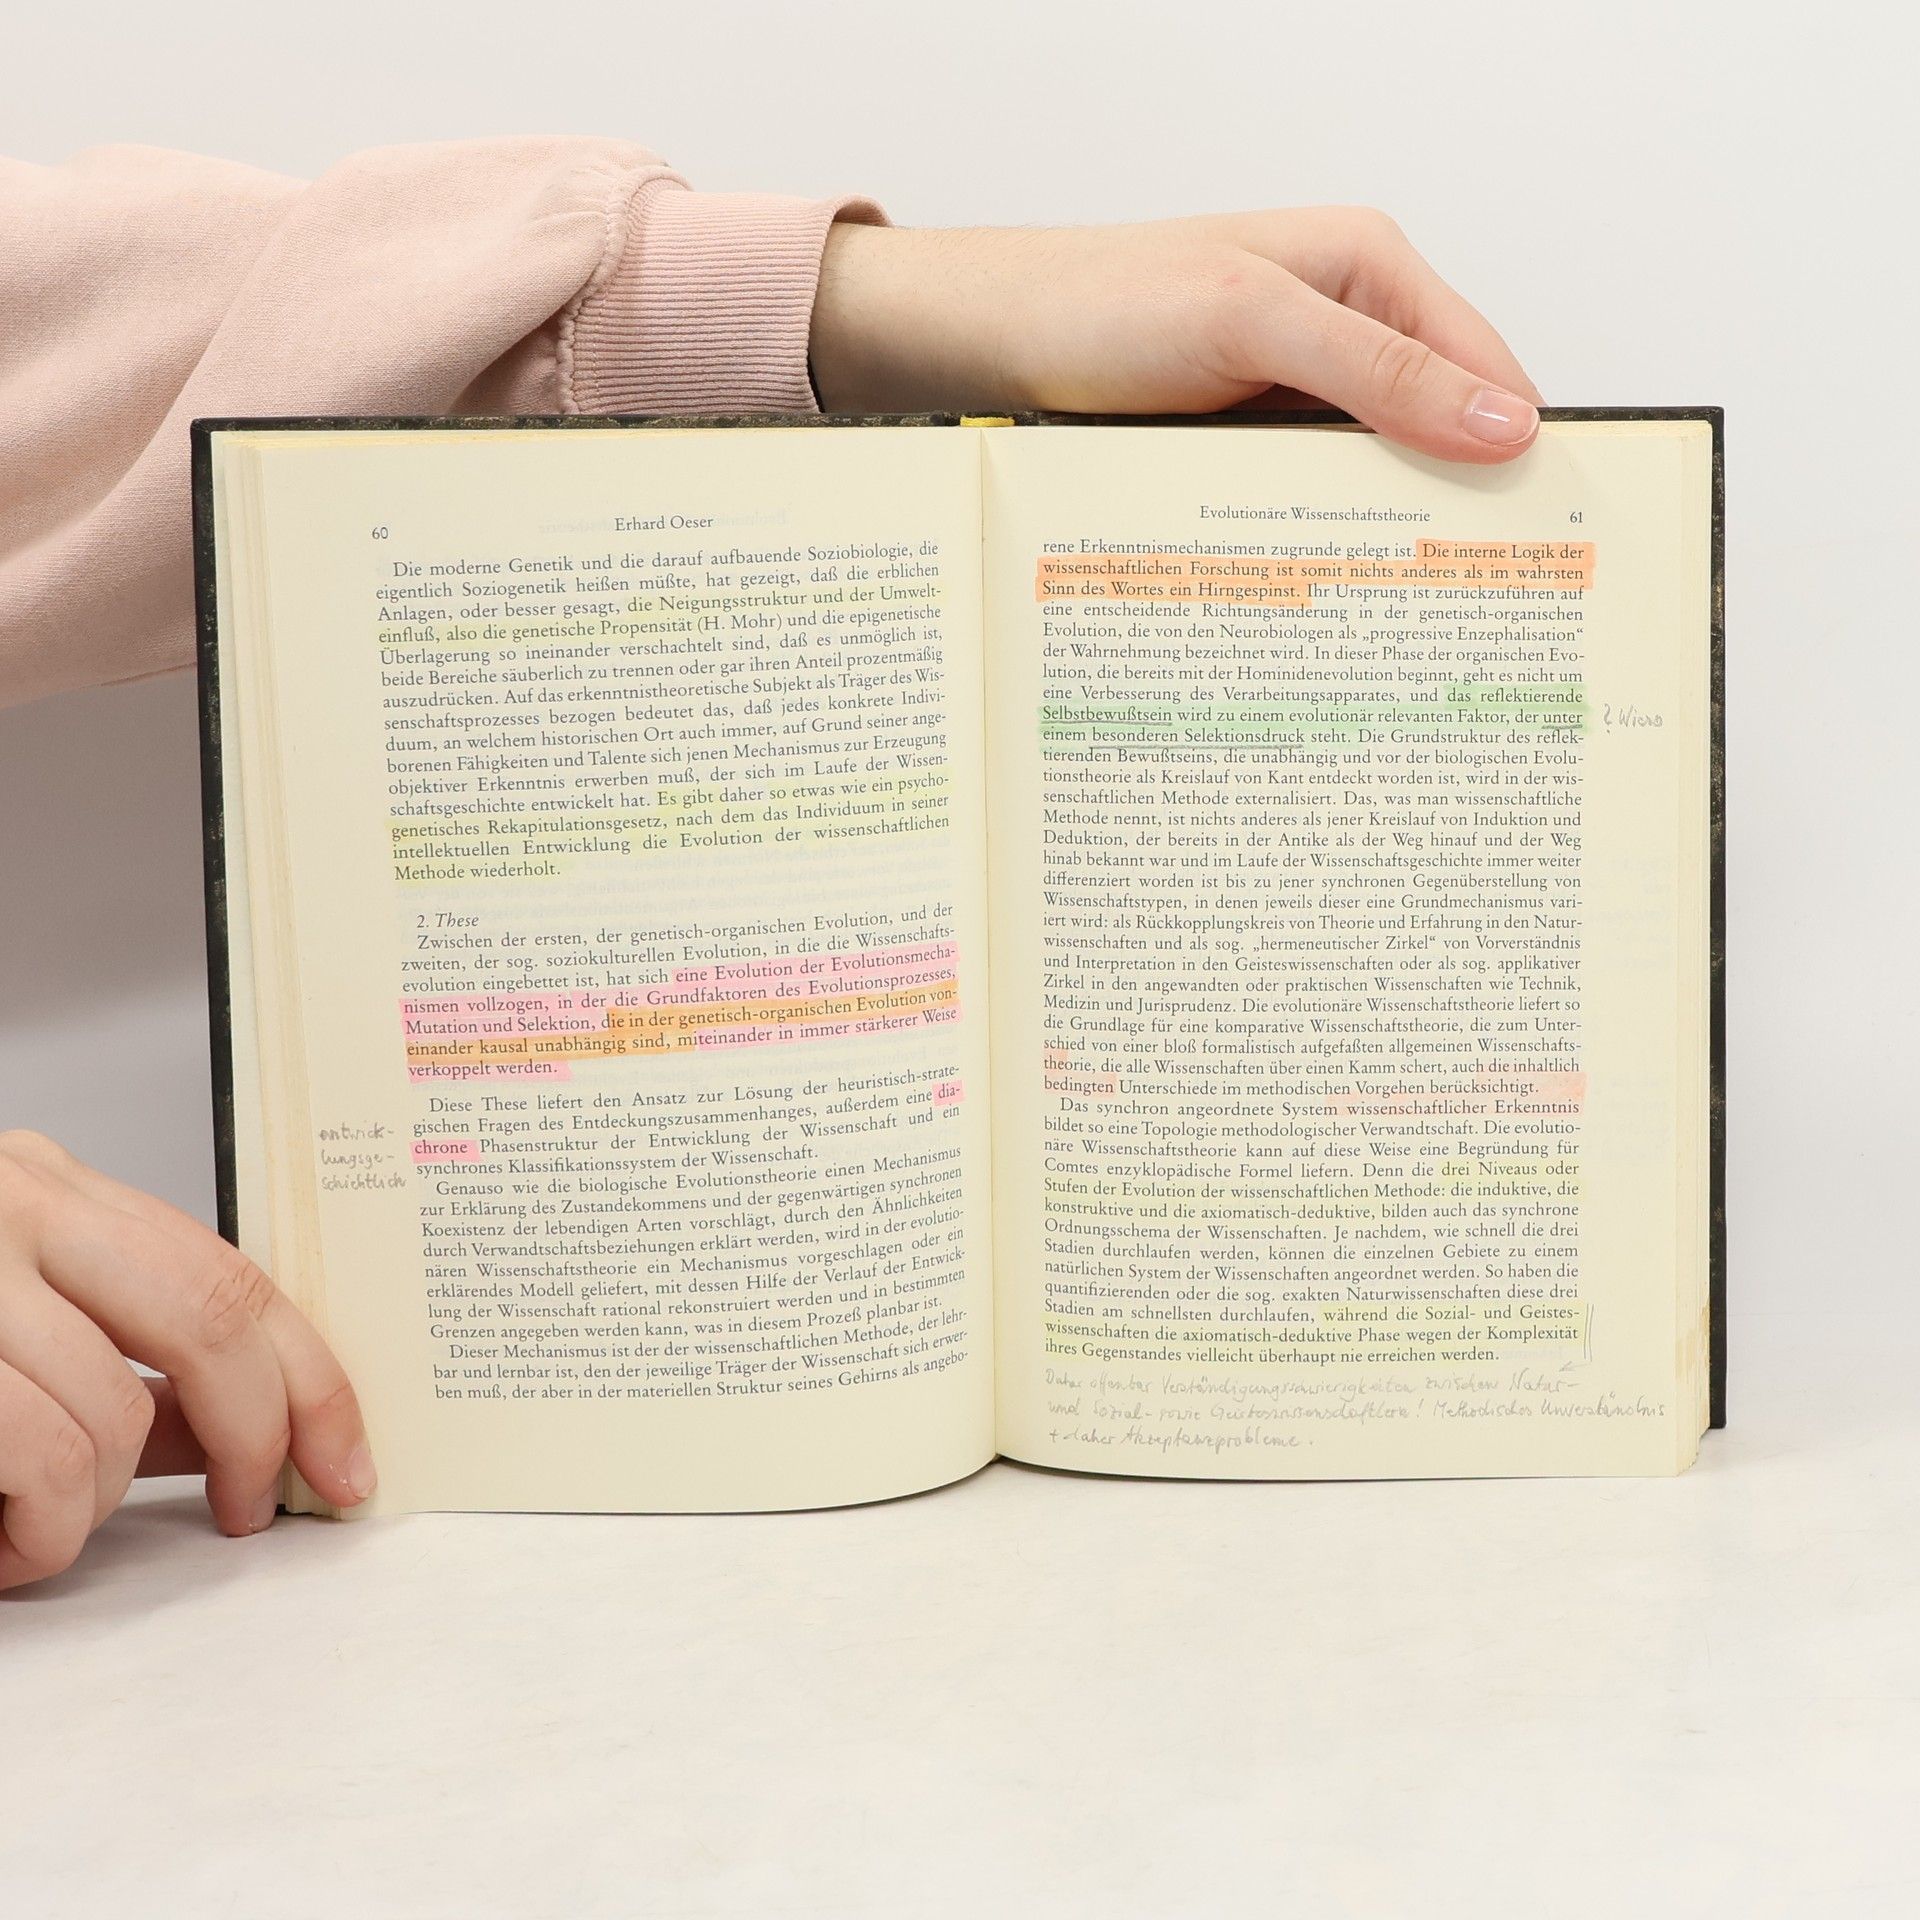 60
Erhard Oeser
Die moderne Genetik und die darauf aufbauende Soziobiologie, die
eigentlich Soziogenetik heißen müßte, hat gezeigt, daß die erblichen
Anlagen, oder besser gesagt, die Neigungsstruktur und der Umwelt-
einfluß, also die genetische Propensität (H. Mohr) und die epigenetische
Überlagerung so ineinander verschachtelt sind, daß es unmöglich ist,
beide Bereiche säuberlich zu trennen oder gar ihren Anteil prozentmäßig
auszudrücken. Auf das erkenntnistheoretische Subjekt als Träger des Wis-
senschaftsprozesses bezogen bedeutet das, daß jedes konkrete Indivi-
duum, an welchem historischen Ort auch immer, auf Grund seiner ange-
borenen Fähigkeiten und Talente sich jenen Mechanismus zur Erzeugung
objektiver Erkenntnis erwerben muß, der sich im Laufe der Wissen-
schaftsgeschichte entwickelt hat. Es gibt daher so etwas wie ein psycho-
genetisches Rekapitulationsgesetz, nach dem das Individuum in seiner
intellektuellen Entwicklung die Evolution der wissenschaftlichen
Methode wiederholt.
2. These
Zwischen der ersten, der genetisch-organischen Evolution, und der
zweiten, der sog. soziokulturellen Evolution, in die die Wissenschafts-
evolution eingebettet ist, hat sich eine Evolution der Evolutionsmecha-
nismen vollzogen, in der die Grundfaktoren des Evolutionsprozesses,
Mutation und Selektion, die in der genetisch-organischen Evolution von-
einander kausal unabhängig sind, miteinander in immer stärkerer Weise
verkoppelt werden.
Diese These liefert den Ansatz zur Lösung der heuristisch-strate-
gischen Fragen des Entdeckungszusammenhanges, außerdem eine dia-
chrone Phasenstruktur der Entwicklung der Wissenschaft und ein
synchrones Klassifikationssystem der Wissenschaft.
entwick-
lungsge-
schichtlich
Genauso wie die biologische Evolutionstheorie einen Mechanismus
zur Erklärung des Zustandekommens und der gegenwärtigen synchronen
Koexistenz der lebendigen Arten vorschlägt, durch den Ähnlichkeiten
durch Verwandtschaftsbeziehungen erklärt werden, wird in der evolutio-
nären Wissenschaftstheorie ein Mechanismus vorgeschlagen oder ein
erklärendes Modell geliefert, mit dessen Hilfe der Verlauf der Entwick-
lung der Wissenschaft rational rekonstruiert werden und in bestimmten
Grenzen angegeben werden kann, was in diesem Prozeß planbar ist.
Dieser Mechanismus ist der der wissenschaftlichen Methode, der lehr-
bar und lernbar ist, den der jeweilige Träger der Wissenschaft sich erwer-
ben muß, der aber in der materiellen Struktur seines Gehirns als angebo-
Evolutionäre Wissenschaftstheorie
61
rene Erkenntnismechanismen zugrunde gelegt ist. Die interne Logik der
wissenschaftlichen Forschung ist somit nichts anderes als im wahrsten
Sinn des Wortes ein Hirngespinst. Ihr Ursprung ist zurückzuführen auf
eine entscheidende Richtungsänderung in der genetisch-organischen
Evolution, die von den Neurobiologen als „progressive Enzephalisation“
der Wahrnehmung bezeichnet wird. In dieser Phase der organischen Evo-
lution, die bereits mit der Hominidenevolution beginnt, geht es nicht um
eine Verbesserung des Verarbeitungsapparates, und das reflektierende
Selbstbewußtsein wird zu einem evolutionär relevanten Faktor, der unter
? Wieso
einem besonderen Selektionsdruck steht. Die Grundstruktur des reflek-
tierenden Bewußtseins, die unabhängig und vor der biologischen Evolu-
tionstheorie als Kreislauf von Kant entdeckt worden ist, wird in der wis-
senschaftlichen Methode externalisiert. Das, was man wissenschaftliche
Methode nennt, ist nichts anderes als jener Kreislauf von Induktion und
Deduktion, der bereits in der Antike als der Weg hinauf und der Weg
hinab bekannt war und im Laufe der Wissenschaftsgeschichte immer weiter
differenziert worden ist bis zu jener synchronen Gegenüberstellung von
Wissenschaftstypen, in denen jeweils dieser eine Grundmechanismus vari-
iert wird: als Rückkopplungskreis von Theorie und Erfahrung in den Natur-
wissenschaften und als sog. „hermeneutischer Zirkel“ von Vorverständnis
und Interpretation in den Geisteswissenschaften oder als sog. applikativer
Zirkel in den angewandten oder praktischen Wissenschaften wie Technik,
Medizin und Jurisprudenz. Die evolutionäre Wissenschaftstheorie liefert so
die Grundlage für eine komparative Wissenschaftstheorie, die zum Unter-
schied von einer bloß formalistisch aufgefaßten allgemeinen Wissenschafts-
theorie, die alle Wissenschaften über einen Kamm schert, auch die inhaltlich
bedingten Unterschiede im methodischen Vorgehen berücksichtigt.
Das synchron angeordnete System wissenschaftlicher Erkenntnis
bildet so eine Topologie methodologischer Verwandtschaft. Die evolutio-
näre Wissenschaftstheorie kann auf diese Weise eine Begründung für
Comtes enzyklopädische Formel liefern. Denn die drei Niveaus oder
Stufen der Evolution der wissenschaftlichen Methode: die induktive, die
konstruktive und die axiomatisch-deduktive, bilden auch das synchrone
Ordnungsschema der Wissenschaften. Je nachdem, wie schnell die drei
Stadien durchlaufen werden, können die einzelnen Gebiete zu einem
natürlichen System der Wissenschaften angeordnet werden. So haben die
quantifizierenden oder die sog. exakten Naturwissenschaften diese drei
Stadien am schnellsten durchlaufen, während die Sozial- und Geistes-
wissenschaften die axiomatisch-deduktive Phase wegen der Komplexität
ihres Gegenstandes vielleicht überhaupt nie erreichen werden.
Daher offenbar Verständigungsschwierigkeiten zwischen Natur-
und Sozial- sowie Geisteswissenschaftlern! Methodisches Unverständnis
+ daher Akzeptanzprobleme.